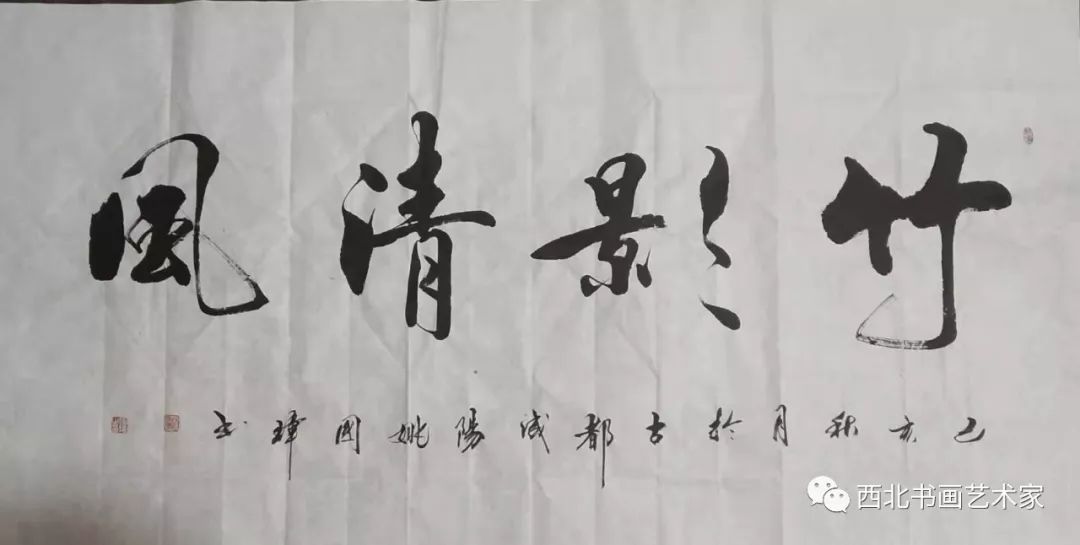 竹影清風
己亥秋月於古都咸陽姚國瑋書
西北书画艺术家